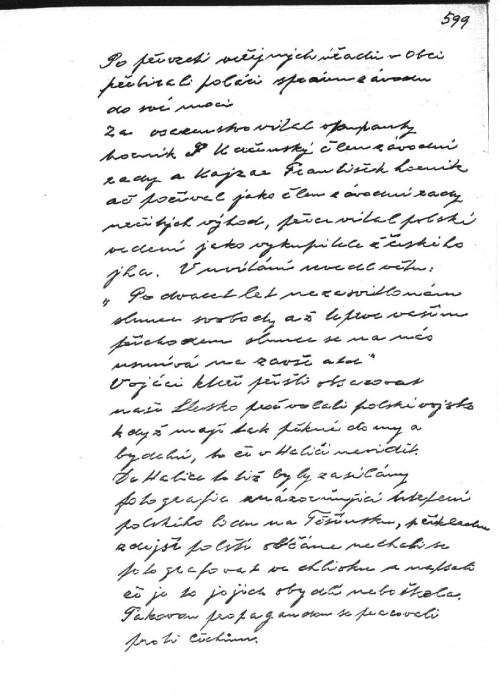 599
Po převzetí veřejných úřadů v Obci
přebírali poláci správu závodu
do své moci
Za osazenstvo vítal okupanty
horník P Kaczinský člen závodní
rady a Kajzar František horník
ač požíval jako člen závodní rady
nečitých výhod, přece vítal polské
vedení jako vykupitele z českého
jha. V uvítání uvedl větu:
„Po dvacet let nezasvitlo nám
slunce svobody až teprve vaším
příchodem slunce se na nás
usmívá na zavše atd"
Vojáci kteří přišli obsazovat
naše Slezsko
když mají tak pěkné domy a
bydlení, to či v Haliči nevidět.
Do Haliče totiž byly zasílány
fotografie znázorňující
polského lidu na Těšínsku, příkladem
zdejší polští občané nechali se
fotografovat ve chlívku a napsali
či je to jejich obydlí nebo škola.
Takovou propagandou se pracovali
proti Čechům.